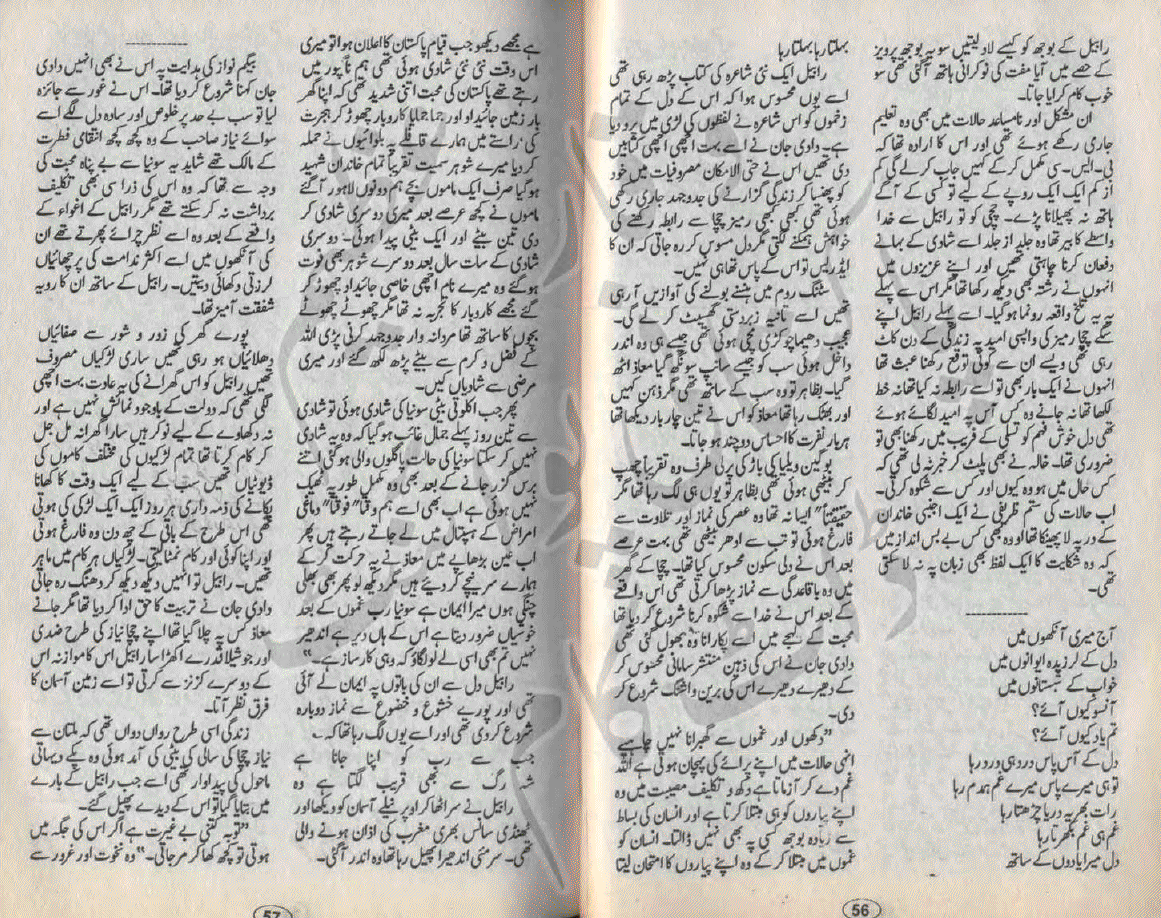 رابیل کے بوجھ کو کیسے لادلیتیں سو یہ بوجھ پرویز
کے حصے میں آیا مفت کی نوکرانی ہاتھ آگئی تھی سو
خوب کام کرایا جاتا۔
ان مشکل اور نامساعد حالات میں بھی وہ تعلیم
جاری رکھے ہوئے تھی اور اس کا ارادہ تھا کہ
بی۔ایس۔سی مکمل کر کے کہیں جاب کرلے گی کم
از کم ایک ایک روپے کے لیے تو کسی کے آگے
ہاتھ نہ پھیلانا پڑے۔ چچی کو تو رابیل سے خدا
واسطے کا بیر تھا وہ جلد از جلد اسے شادی کے بہانے
دفعان کرنا چاہتی تھیں اور اپنے عزیزوں میں
انہوں نے رشتہ بھی دیکھ رکھا تھا مگر اس سے پہلے
ہی یہ تلخ واقعہ رونما ہوگیا۔ اس سے پہلے رابیل اپنے
سگے چچا رمیز کی واپسی امید پہ زندگی کے دن کاٹ
رہی تھی ویسے ان سے کوئی توقع رکھنا عبث تھا
انہوں نے ایک بار بھی تو اسے رابطہ نہ کیا تھا نہ خط
لکھا تھا نہ جانے وہ کس آس پہ امید لگائے ہوئے
تھی دل خوش فہم کو تسلی کے فریب میں رکھنا بھی تو
ضروری تھا۔ خالہ نے بھی پلٹ کر خبر نہ لی تھی کہ
کس حال میں ہو وہ کیوں اور کس سے شکوہ کرتی۔
اب حالات کی ستم ظریفی نے ایک اجنبی خاندان
کے در پہ لا پھینکا تھا اوہ بھی کس بے بس انداز میں
کہ وہ شکایت کا ایک لفظ بھی زبان پہ نہ لاسکتی
تھی۔
آج میری آنکھوں میں
دل کے لرزیدہ ایوانوں میں
خواب کے شبستانوں میں
آنسو کیوں آئے؟
تم یاد کیوں آئے؟
دل کے آس پاس درد ہی درد رہا
تو ہی میرے پاس میرے غم ہمدم رہا
رات بھر یہ دریا چڑھتا رہا
غم ہی غم بکھرتا رہا
دل میرا یادوں کے ساتھ
بہلتا رہا بہلتا رہا
رابیل ایک نئی شاعرہ کی کتاب پڑھ رہی تھی
اسے یوں محسوس ہوا کہ اس کے دل کے تمام
زخموں کو اس شاعرہ نے لفظوں کی لڑی میں پرو دیا
ہے۔ دادی جان نے اسے بہت اچھی اچھی کتابیں
دی تھیں اس نے حتی الامکان مصروفیات میں خود
کو پھنسا کر زندگی گزارنے کی جدوجہد جاری رکھی
ہوئی تھی کبھی کبھی رمیز چچا سے رابطہ رکھنے کی
خواہش ہمکنے لگتی مگر دل مسوس کر رہ جاتی کہ ان کا
ایڈریس تو اس کے پاس تھا ہی نہیں۔
سٹنگ روم میں ہنسنے بولنے کی آوازیں آرہی
تھیں اسے تانیہ زبردستی گھسیٹ کر لے گی۔
عجیب دھماچوکڑی مچی ہوئی تھی جیسے ہی وہ اندر
داخل ہوئی سب کو جیسے سانپ سونگھ گیا معاذ اٹھ
گیا۔ بظاہر تو وہ سب کے ساتھ تھی مگر ذہن کہیں
اور بھٹک رہا تھا معاذ کو اس نے تین چار بار دیکھا تھا
ہر بار نفرت کا احساس دوچند ہوجاتا۔
بوگین ویلیا کی باڑ کی پرلی طرف وہ تقریباً چھپ
کر بیٹھی ہوئی تھی بظاہر تو یوں ہی لگ رہا تھا مگر
حقیقتاً" ایسا نہ تھا وہ عصر کی نماز اور تلاوت سے
فارغ ہوئی تو تب سے ادھر بیٹھی تھی بہت عرصے
بعد اس نے دلی سکون محسوس کیا تھا۔ چچا کے گھر
میں وہ باقاعدگی سے نماز پڑھا کرتی تھی اس واقعے
کے بعد اس نے خدا سے شکوہ کرنا شروع کر دیا تھا
محبت کے لہجے میں اسے پکارانا وہ بھول گئی تھی
دادی جان نے اس کی ذہین منتشر سامانی محسوس کر
کے دھیرے دھیرے اس کی برین واشنگ شروع کر
دی۔
"دکھوں اور غموں سے گھبرانا نہیں چاہیے
انہی حالات میں اپنے پرائے کی پہچان ہوتی ہے اللہ
غم دے کر آزماتا ہے دکھ و تکلیف مصیبت میں وہ
اپنے پیاروں کو ہی مبتلا کرتا ہے اور انسان کی بساط
سے زیادہ بوجھ کسی پہ بھی نہیں ڈالتا۔ انسان کو
غموں میں مبتلا کر کے وہ اپنے پیاروں کا امتحان لیتا
56
ہے مجھے دیکھو جب قیام پاکستان کا اعلان ہوا تو میری
اس وقت نئی نئی شادی ہوئی تھی ہم ناگپور میں
رہتے تھے پاکستان کی محبت اتنی شدید تھی کہ اپنا گھر
بار زمین جائیداد اور جما جمایا کاروبار چھوڑ کر ہجرت
کی' راستے میں ہمارے قافلے پہ بلوائیوں نے حملہ
کر دیا میرے شوہر سمیت تقریباً تمام خاندان شہید
ہوگیا صرف ایک ماموں بچے ہم دونوں لاہور آگئے
ماموں نے کچھ عرصے بعد میری دوسری شادی کر
دی تین بیٹے اور ایک بیٹی پیدا ہوئی۔ دوسری
شادی کے سات سال بعد دوسرے شوہر بھی فوت
ہوگئے وہ میرے نام اچھی خاصی جائیداد چھوڑ کر
گئے مجھے کاروبار کا تجربہ نہ تھا مگر چھوٹے چھوٹے
بچوں کا ساتھ تھا مردانہ وار جدوجہد کرنی پڑی اللہ
کے فضل و کرم سے بیٹے پڑھ لکھ گئے اور میری
مرضی سے شادیاں کیں۔
پھر جب اکلوتی بیٹی سونیا کی شادی ہوئی تو شادی
سے تین روز پہلے جمال غائب ہوگیا کہ وہ یہ شادی
نہیں کر سکتا سونیا کی حالت پاگلوں والی ہوگئی اتنے
برس گزر جانے کے بعد بھی وہ مکمل طور پہ ٹھیک
نہیں ہوئی ہے اب بھی اسے ہم وقتاً" فوقتاً" دماغی
امراض کے ہسپتال میں لے جاتے رہتے ہیں پھر
اب عین بڑھاپے میں معاذ نے یہ حرکت کر کے
ہمارے سر نیچے کر دیے ہیں مگر دیکھ لو پھر بھی بھلی
چنگی ہوں میرا ایمان ہے سونیا رب غموں کے بعد
خوشیاں ضرور دیتا ہے اس کے ہاں دیر ہے اندھیر
نہیں تم بھی اسی لے لو لگاؤ کہ وہی کارساز ہے۔"
رابیل دل سے ان کی باتوں پہ ایمان لے آئی
تھی اور پورے خشوع و خضوع سے نماز دوبارہ
شروع کردی تھی اور اسے یوں لگ رہا تھا کہ۔
جب سے رب کو اپنا جانا ہے
شہ رگ سے بھی قریب لگتا ہے وہ
رابیل نے سر اٹھا کر اوپر نیلے آسمان کو دیکھا اور
ٹھنڈی سانس بھری مغرب کی اذان ہونے والی
تھی۔ سرمئی اندھیرا پھیل رہا تھا وہ اندر آگئی۔
بیگم نواز کی ہدایت پہ اس نے بھی انہیں دادی
جان کہنا شروع کر دیا تھا۔ اس نے غور سے جائزہ
لیا تو سب بے حد پر خلوص اور سادہ دل لگے اسے
سوائے نیاز صاحب کے وہ کچھ کچھ انتقامی فطرت
کے مالک تھے شاید یہ سونیا سے بے پناہ محبت کی
وجہ سے تھا کہ وہ اس کی ذرا سی بھی تکلیف
برداشت نہ کرسکتے تھے مگر رابیل کے اغواء کے
واقعے کے بعد وہ اسے نظر چرائے پھرتے تھے ان
کی آنکھوں میں اسے اکثر ندامت کی پرچھائیاں
لرزتی دکھائی دیتیں۔ رابیل کے ساتھ ان کا رویہ
شفقت آمیز تھا۔
پورے گھر کی زور و شور سے صفائیاں
دھلائیاں ہو رہی تھیں ساری لڑکیاں مصروف
تھیں رابیل کو اس گھرانے کی یہ عادت بہت اچھی
لگی تھی کہ دولت کے باوجود نمائش نہیں ہے اور
نہ دکھاوے کے لیے نوکر ہیں سارا گھرانہ مل جل
کر کام کرتا تھا تمام لڑکیوں کی مختلف کاموں کی
ڈیوٹیاں تھیں سب کے لیے ایک وقت کا کھانا
پکانے کی ذمہ داری ہر روز ایک ایک لڑکی کی ہوتی
تھی اس طرح کے باقی کے چھ دن وہ فارغ ہوتی
اور اپنا کوئی اور کام نمٹالیتی۔ لڑکیاں ہر کام میں ماہر
تھیں۔ رابیل تو انہیں دیکھ دیکھ کر دھنگ رہ جاتی
دادی جان نے تربیت کا حق ادا کر دیا تھا مگر جانے
معاذ کس پہ چلا گیا تھا اپنے چچا نیاز کی طرح ضدی
اور جوشیلا قدرے اکھڑا سا رابیل اس کا موازنہ اس
کے دوسرے کزنز سے کرتی تو اسے زمین آسمان کا
فرق نظر آتا۔
زندگی اسی طرح رواں دواں تھی کہ ملتان سے
نیاز چچا کی سالی کی بیٹی کی آمد ہوئی وہ پکے دیہاتی
ماحول کی پیداوار تھی اسے جب رابیل کے بارے
میں بتایا گیا تو اس کے دیدے پھیل گئے۔
"توبہ کتنی بے غیرت ہے اگر اس کی جگہ میں
ہوتی تو کچھ کھا کر مرجاتی۔" وہ نخوت اور غرور سے
57